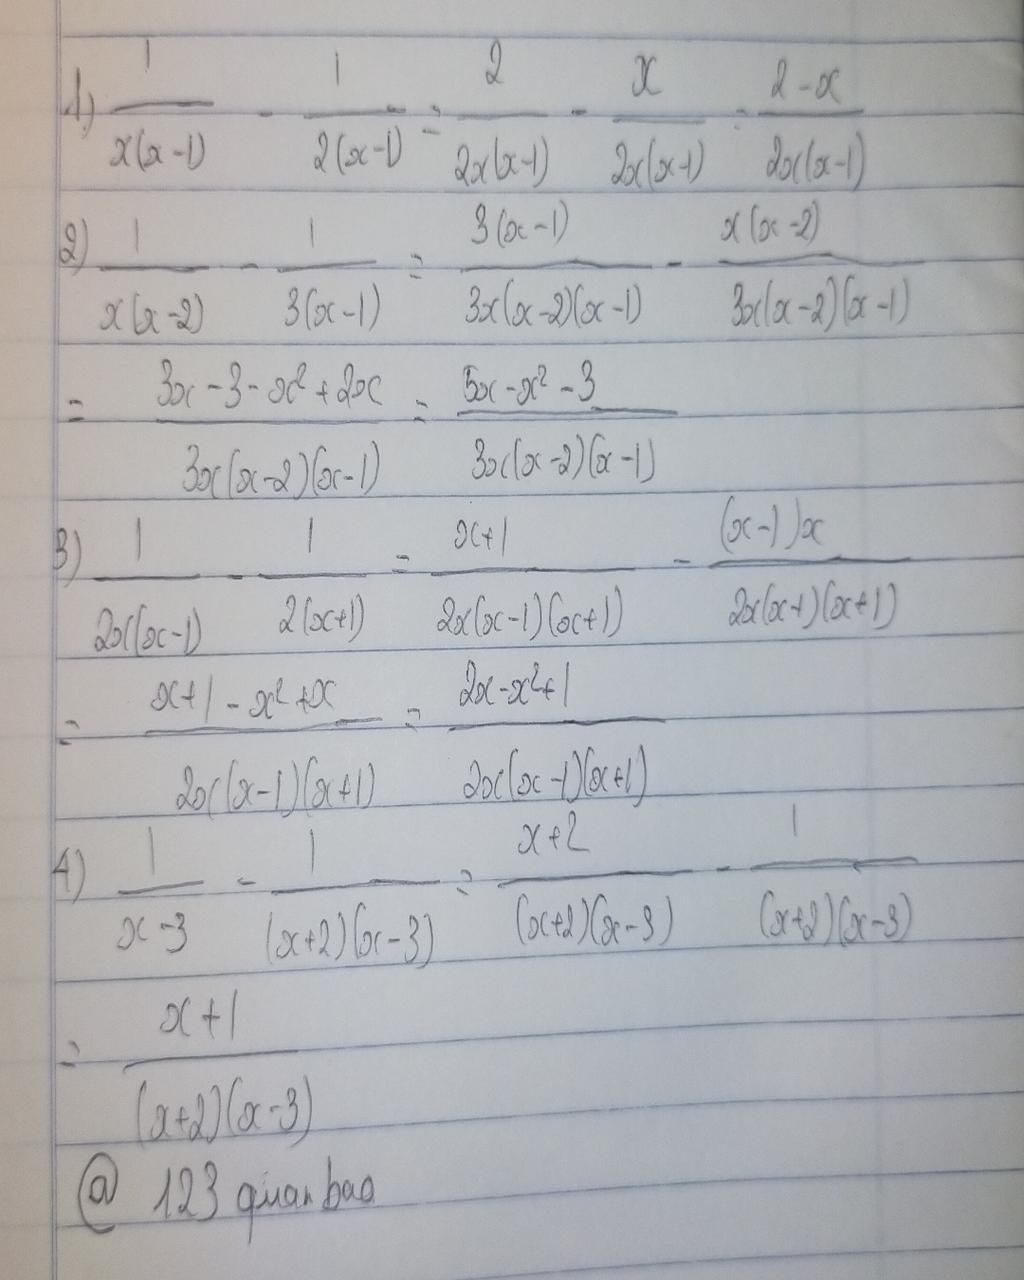 1) 1/(x(x-1)) - 1/(2(x-1)) = 2/(2x(x-1)) - x/(2x(x-1)) = (2-x)/(2x(x-1))
2) 1/(x(x-2)) - 1/(3(x-1)) = 3(x-1)/(3x(x-2)(x-1)) - x(x-2)/(3x(x-2)(x-1))
= (3x-3-x²+2x)/(3x(x-2)(x-1)) = (5x-x²-3)/(3x(x-2)(x-1))
3) 1/(2x(x-1)) - 1/(2(x+1)) = (x+1)/(2x(x-1)(x+1)) - (x-1)x/(2x(x-1)(x+1))
= (x+1-x²+x)/(2x(x-1)(x+1)) = (2x-x²+1)/(2x(x-1)(x+1))
4) 1/(x-3) - 1/((x+2)(x-3)) = (x+2)/((x+2)(x-3)) - 1/((x+2)(x-3))
= (x+1)/((x+2)(x-3))
@ 123 quan bao